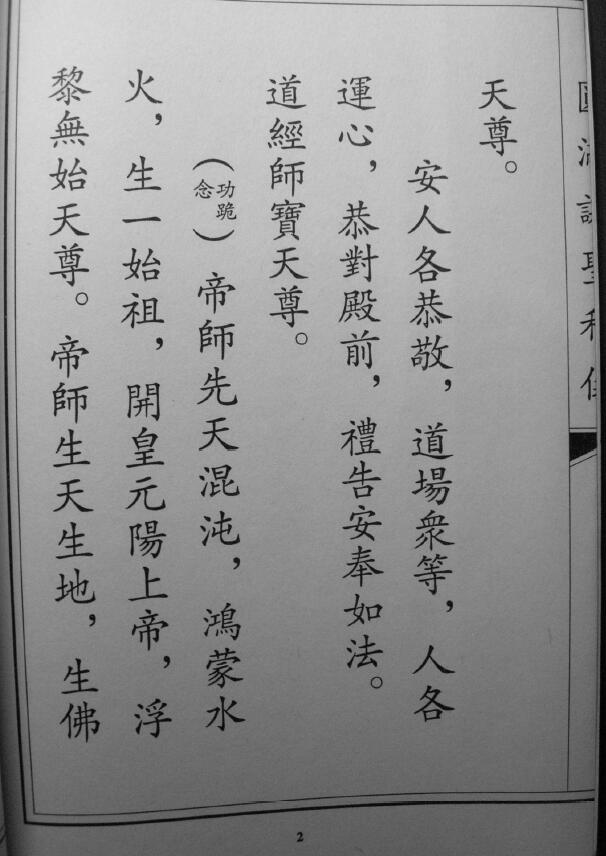 聖
天尊。
安人各恭敬，道場衆等，人各
運心，恭對殿前，禮告安奉如法。
道經師寶天尊。
（功跪念）帝師先天混沌，鴻蒙水
火，生一始祖，開皇元陽上帝，浮
黎無始天尊。帝師生天生地，生佛
2